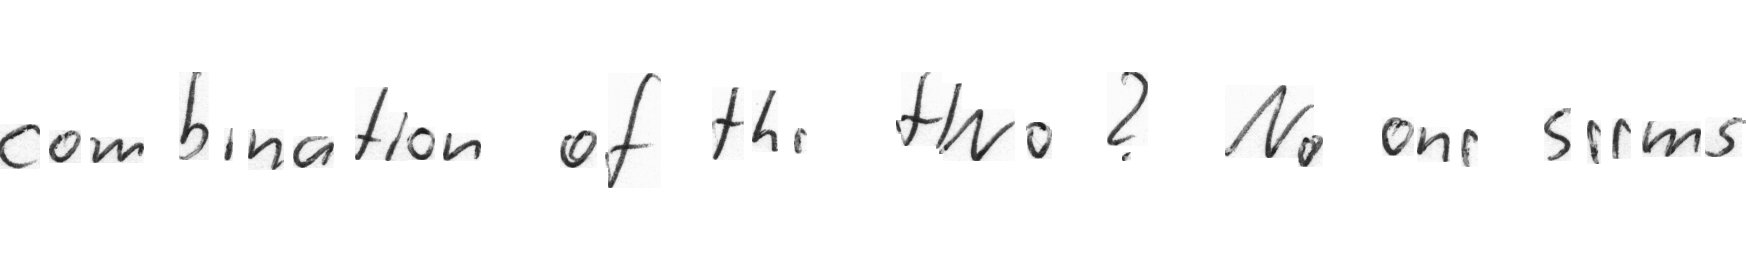 combination of the two? No one seems